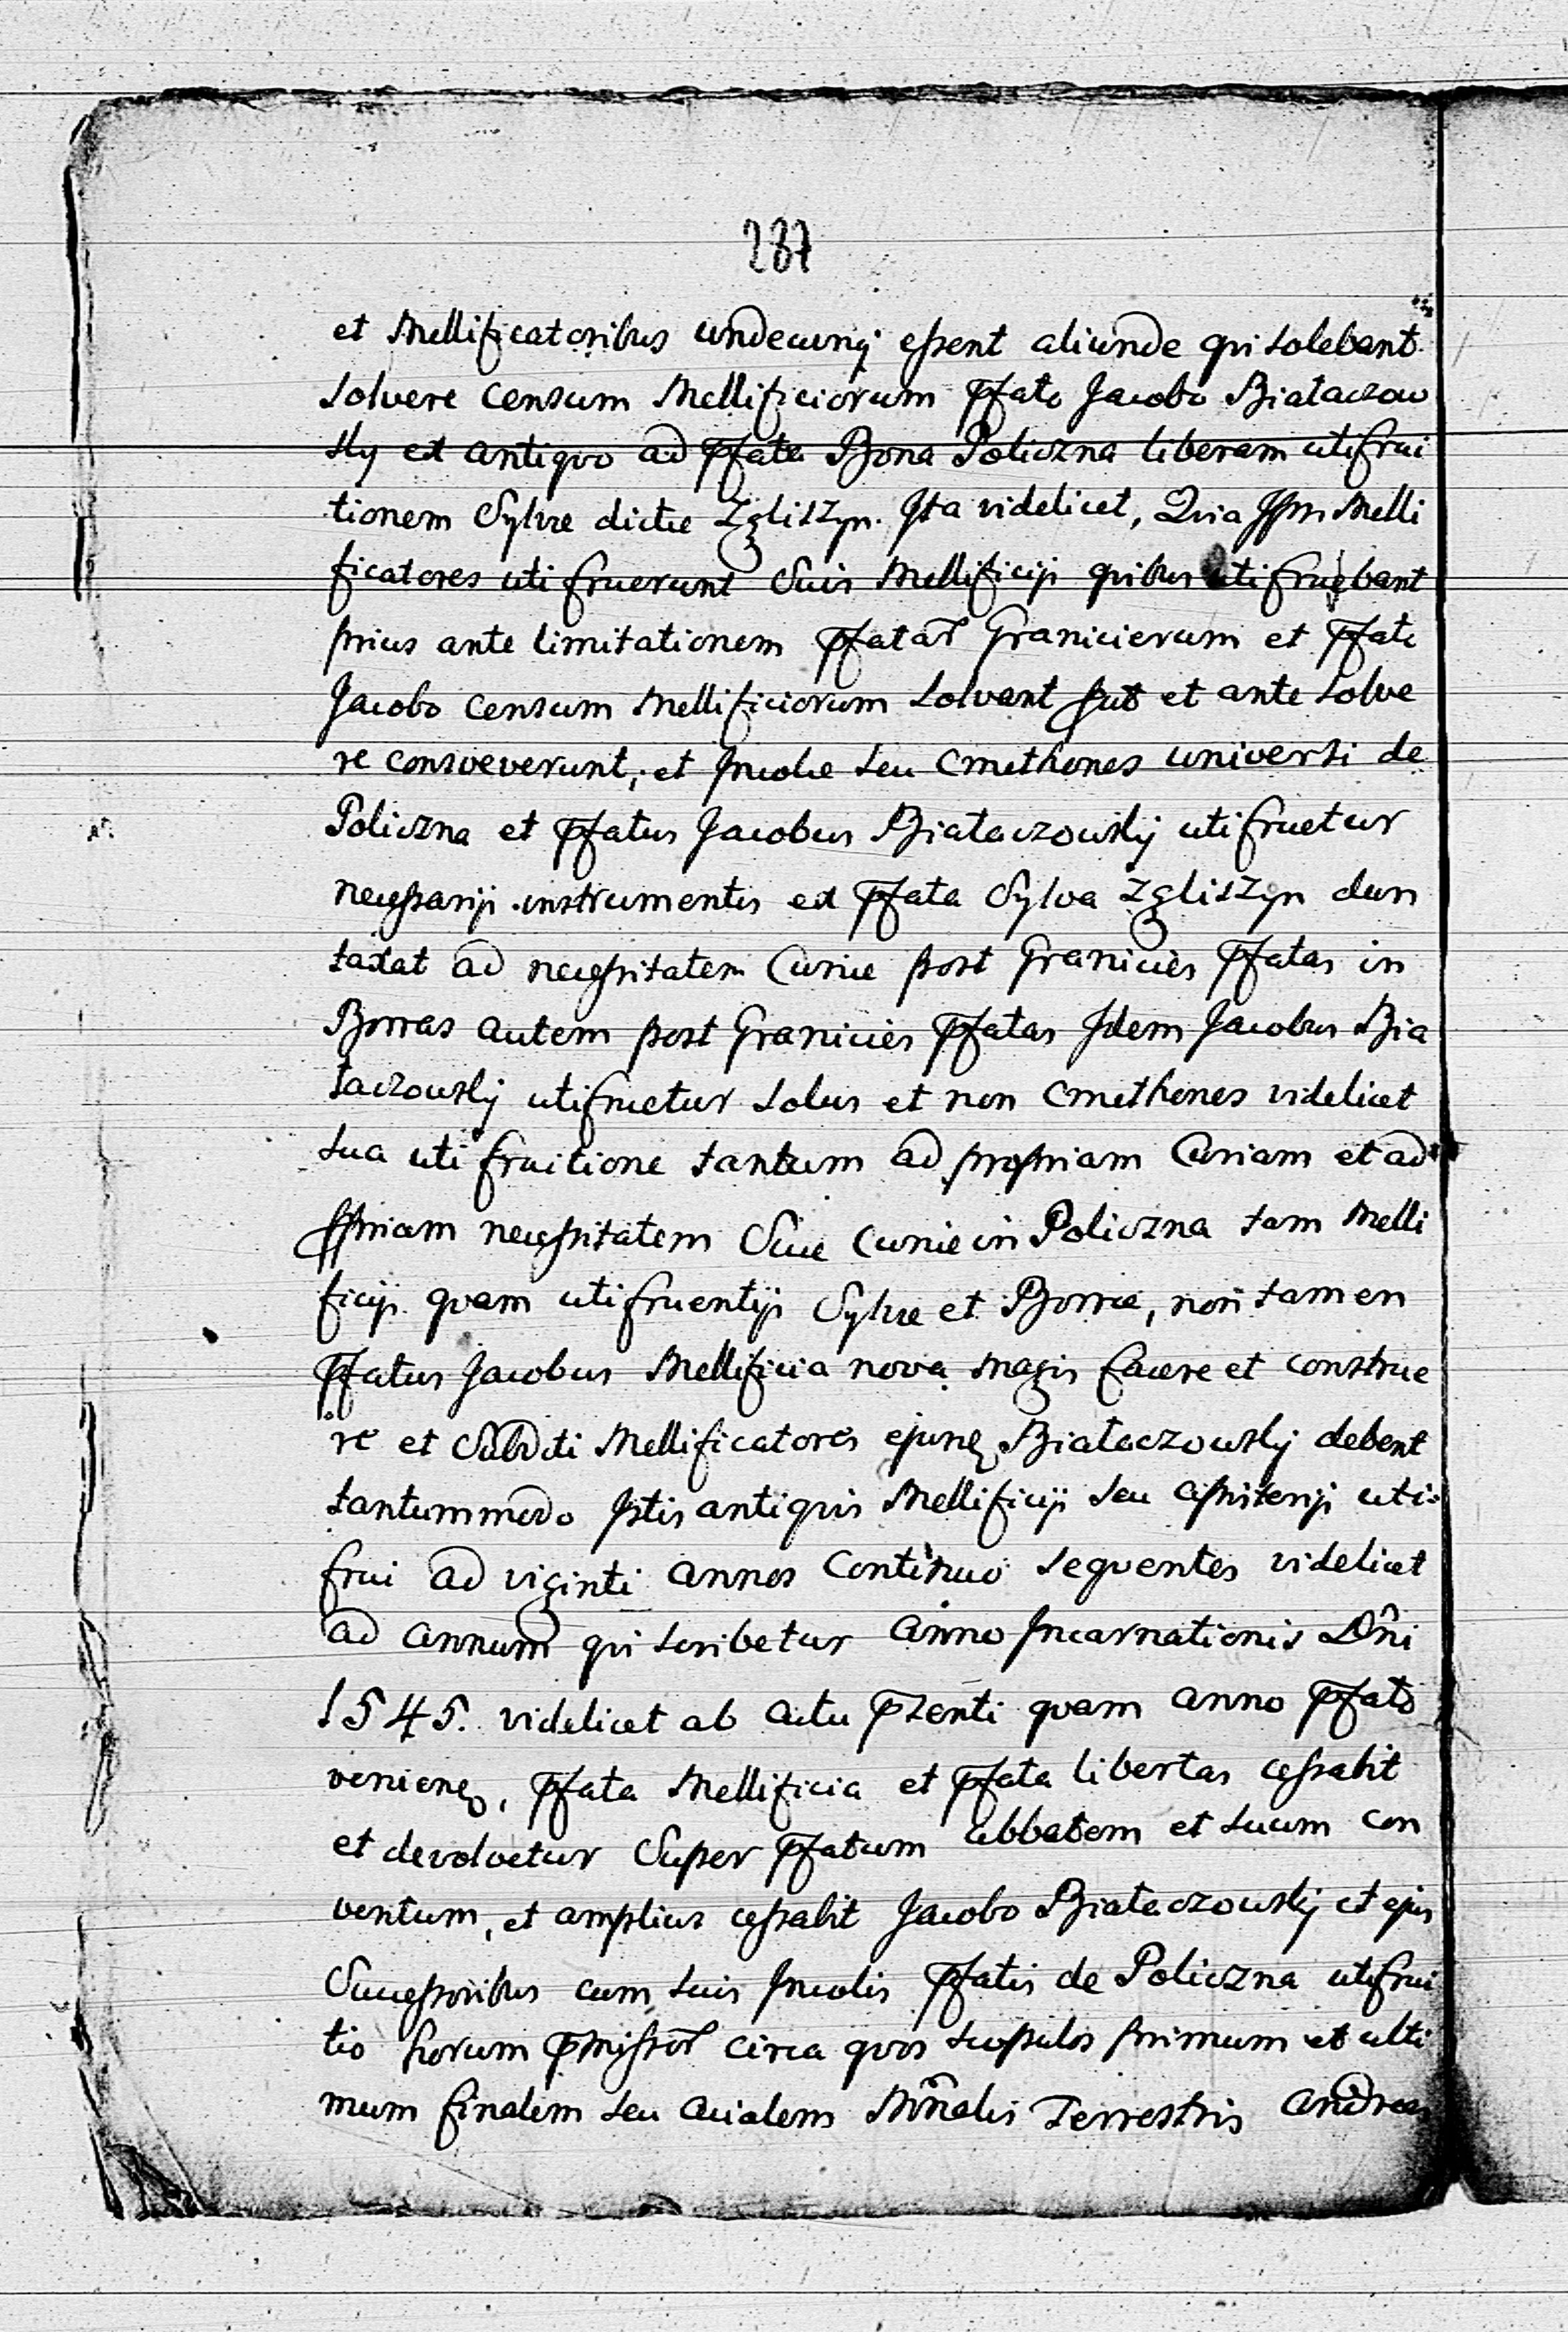 287
et Mellificatoribus undecunqȝ essent aliunde qui solebant
solvere censum Mellificiorum p̅fato Jacobo Białaczow
sky ex antiquo ad p̅fata Bona Policzna liberam utifrui
tionem Sylvæ dictæ Zgliszyn. Ita videlicet, Quia Ipsi Melli
ficatores uti fruerunt Suis Mellificijs quibus utifruebant
prius ante limitationem p̅fatar̃ Granicierum et p̅fato
Jacobo censum Mellificiorum solvant put et ante solve
re consveverunt, et Incolæ seu Cmethones universi de
Policzna et p̅fatus Jacobus Białaczowskij utifruetur
necessarijs instrumentis ex p̅fata Sylva Zgliszyn dun
taxat ad necessitatem Curiæ post Granicies p̅fatas in
Borras autem post Granicies p̅fatas Idem Jacobus Bia
łaczowskij utifruetur solus et non Cmethones videlicet
sua uti fruitione tantum ad propriam Curiam et ad
ppriam necessitatem Suæ Curiæ in Policzna tam Melli
ficijs quam utifruentijs Sylvæ et Borræ, non tamen
p̅fatus Jacobus Mellificia nova magis facere et construe
re et Subditi Mellificatores ejusdȩ Białaczowskij debent
tantummodo Istis antiquis Mellificijs seu uti
frui ad viginti annos Continuo sequentes videlicet
ad annum qui scribetur Anno Incarnationis Dn̂i
1545. videlicet ab actu p̅zenti quam anno p̅fato
veniene, p̅fata Mellificia et p̅fata libertas cessabit
et devolvetur Super p̅fatum abbatem et suum Con
ventum, et amplius cessabit Jacobo Białaczowskij et ejus
Successoribus cum suis Incolis p̅fatis de Policzna utifrui
tio horum p̅missor̃ circa quos scopulos primum et ulti
mum finalem seu acialem Terrestris Andreas